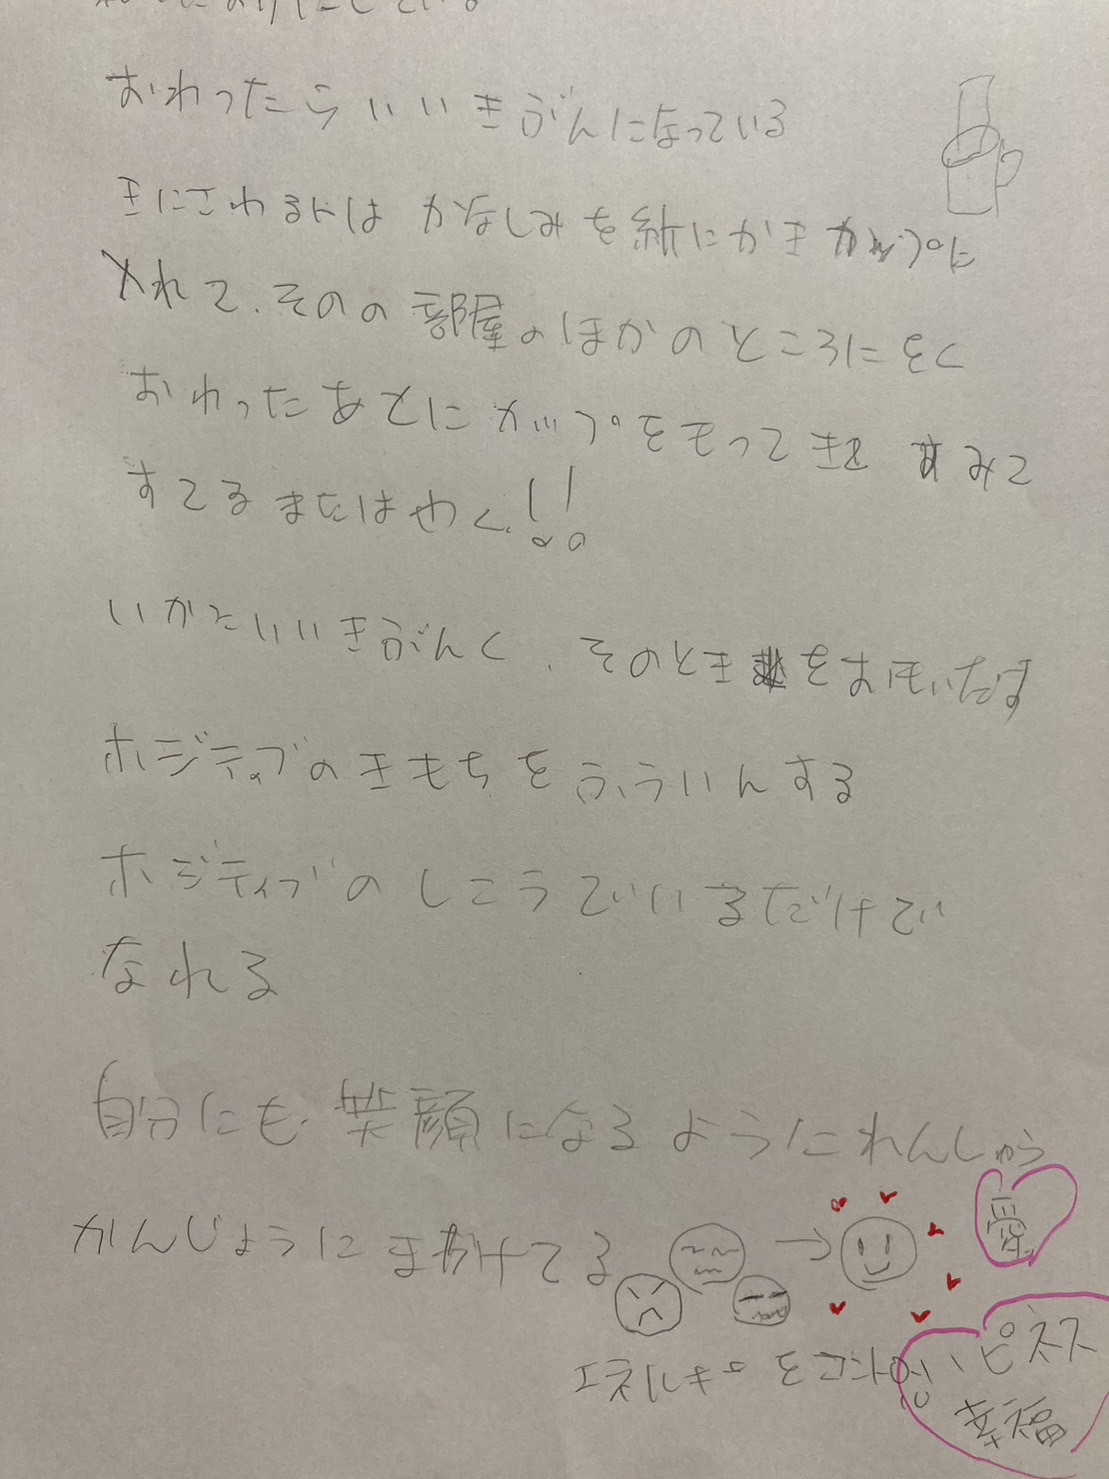 おわったらいいきぶんになっている
きにされる人は かなしみを紙にかきカップに
入れて、そのの部屋のほかのところにをく
おわったあとにカップをもってき みて
すてるまたはやく!!
いかたいいきぶんく、そのときをおもいだす
ホジティブのきもちをふういんする
ホジティブのしこうでいるだけでい
なれる
自分にも笑顔になるようにれんしゅう
かんじょうにまかけてる
愛
エネルギーを
ピネス
幸福